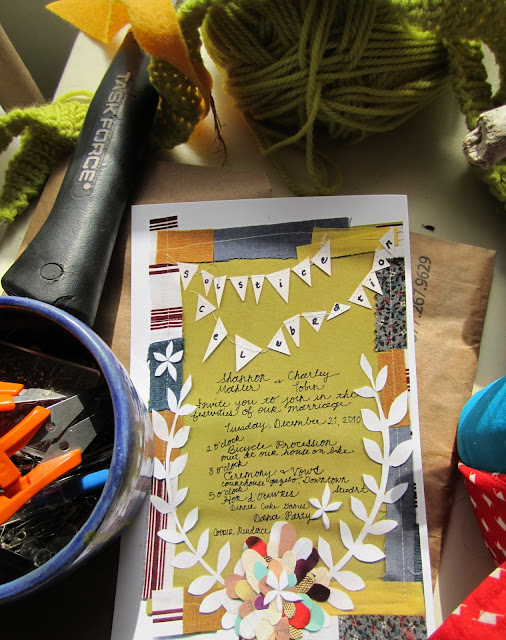 TASK FORCE
Solstice
Celebration
Shannon & Charley
Mahler Tobin
Invite you to join in the
festivities of our marriage
Tuesday, December 21, 2010
2 o'clock
Bicycle Procession
meet at our house on bike
3 o'clock
Ceremony & Vows
courthouse gazebo, Downtown
5 o'clock Stuart
Dinner Cake Games
Dance Party
Residence
267.9629